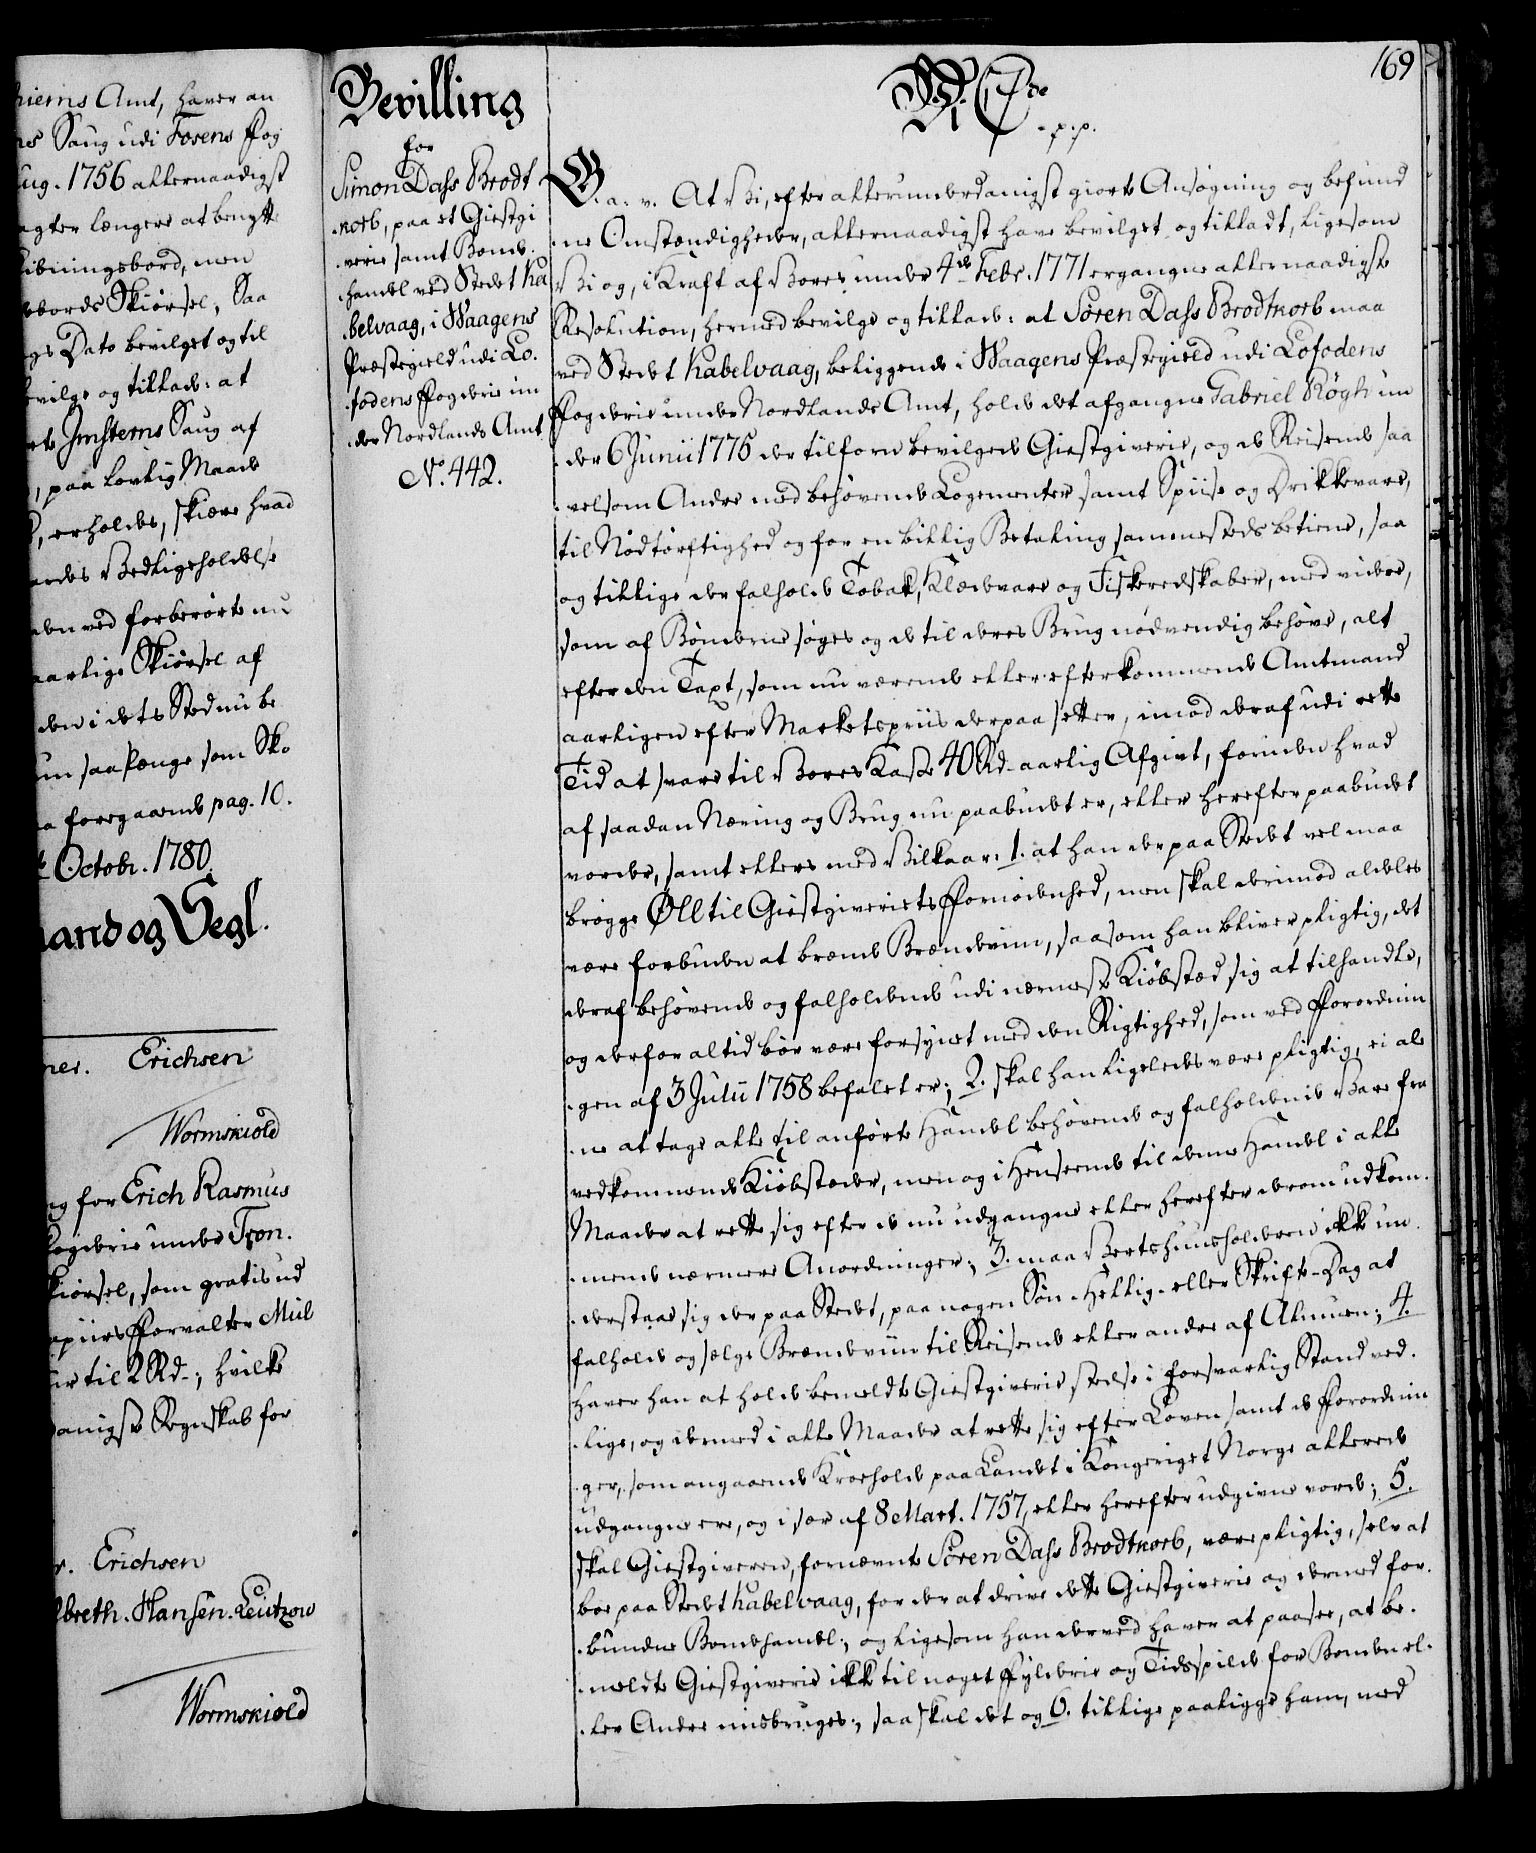 169
hiems Amt, haver an
ns Saug udi Fosens Fog
ug. 1756 allernaadigst
agter længere at benytte
ibningsbord, men
bords Skiørsel; Saa
gs Dato bevilget og til
evilge og tillade: at
rts Jmstems Saug af
, paa lovlig Maade
, erholdes, skiære hvad
ardes Vedligeholdelse
den ved forberørte nu
aarlige Skiørsel af
den i dets Sted nu be
un saa længe som Sko
a foregaaende pag. 10.
Octobr. 1780.
aand og Segl.
ner. Erichsen
Wormskiold
ng for Erich Rasmus
Fogderie under Tron.
kiørsel, som gratis ud
apiirs Forvalter Mül
ur til 2 Rd-; hvilke
danigst Regnskab for
r. Erichsen
lbreth. Hansen. Leutzow
Wormskiold
Bevilling
for
Simon Dass Brodt
.korb, paa et Giestgi
.verie samt Bonde
.handel ved Stedet Ka
.belvaag, i Waagens
Præstegield udi Lo.
.fodens Fogderie un
.der Nordlands Amt
No. 442.
C 7de
.p.p.
G. a. v. At Vi, efter allerunderdanigst giorte Ansøgning og befund
.ne Omstændigheder, allernaadigst have bevilget og tilladt, ligesom
Vi og, i Kraft af Vores under 4de Febr. 1771 ergangne allernaadigste
Resolution, hermed bevilge og tillade: at Søren Dass Brodtkorb maa
ved Stedet Kabelvaag, beliggende i Waagens Præstegield udi Lofodens
Fogderie under Nordlands Amt, holde det afgangne Gabriel Røgh un
.der 6 Junii 1775 der tilforn bevilgede Giestgiverie, og de Reisende saa
.velsom Andre med behøvende Logementer samt Spiise og Drikkevare,
til Nødtørftighed og for en billig Betaling sammesteds betiene, saa
og tillige der falholde Tobak, Klædevare og Fiskeredskaber, med videre,
som af Bønderne søges og de til deres Brug nødvendig behøve, alt
efter den Taxt, som nu værende eller efterkommende Amtmand
aarligen efter Marketspriis derpaa setter, imod deraf udi rette
Tid at svare til Vores Kasse 40 Rd- aarlig Afgivt, foruden hvad
af saadan Næring og Brug nu paabudet er, eller herefter paabudet
vorder, samt ellers med Vilkaar: 1. at han der paa Stedet vel maa
brygge Øll til Giestgiveriets Fornødenhed, men skal derimod aldeles
være forbuden at brænde Brændeviin, saasom han bliver pligtig, det
deraf behøvende og falholdende udi nærmeste Kiøbstæd sig at tilhandle,
og derfor altid bør være forsynet med den Rigtighed, som ved Forordnin
.gen af 3 Julii 1758 befalet er; 2. skal han ligeledes være pligtig, ei ale
.ne at tage alle til anførte Handel behøvende og falholdende Vare fra
vedkommende Kiøbstæder, men og i Henseende til denne Handel i alle
Maader at rette sig efter de nu udgangne eller herefter derom udkom.
.mende nærmere Anordninger; 3. maa Vertshuusholderen ikke un.
.derstaae sig der paa Stedet, paa nogen Søn- Hellig- eller Skrifte-Dag at
falholde og sælge Brændeviin til Reisende eller andre af Almuen; 4.
haver han at holde bemeldte Giestgiverie stedse i forsvarlig Stand ved.
.lige, og dermed i alle Maader at rette sig efter Loven samt de Forordnin
.ger, som angaaende Kroehold paa Landet i Kongeriget Norge allerede
udgangne ere, og i sær af 8 Mart. 1757, eller herefter udgivne vorde; 5.
skal Giestgiveren, fornævnte Søren Dass Brodtkorb, være pligtig, selv at
boe paa Stedet Kabelvaag, for der at drive dette Giestgiverie og dermed for.
.bundne Bondehandel; og ligesom han derved haver at paasee, at be.
.meldte Giestgiverie ikke til noget Fylderie og Tidsspilde for Bonden el.
.ler Andre misbruges; saa skal det og 6. tillige paaligge ham, med